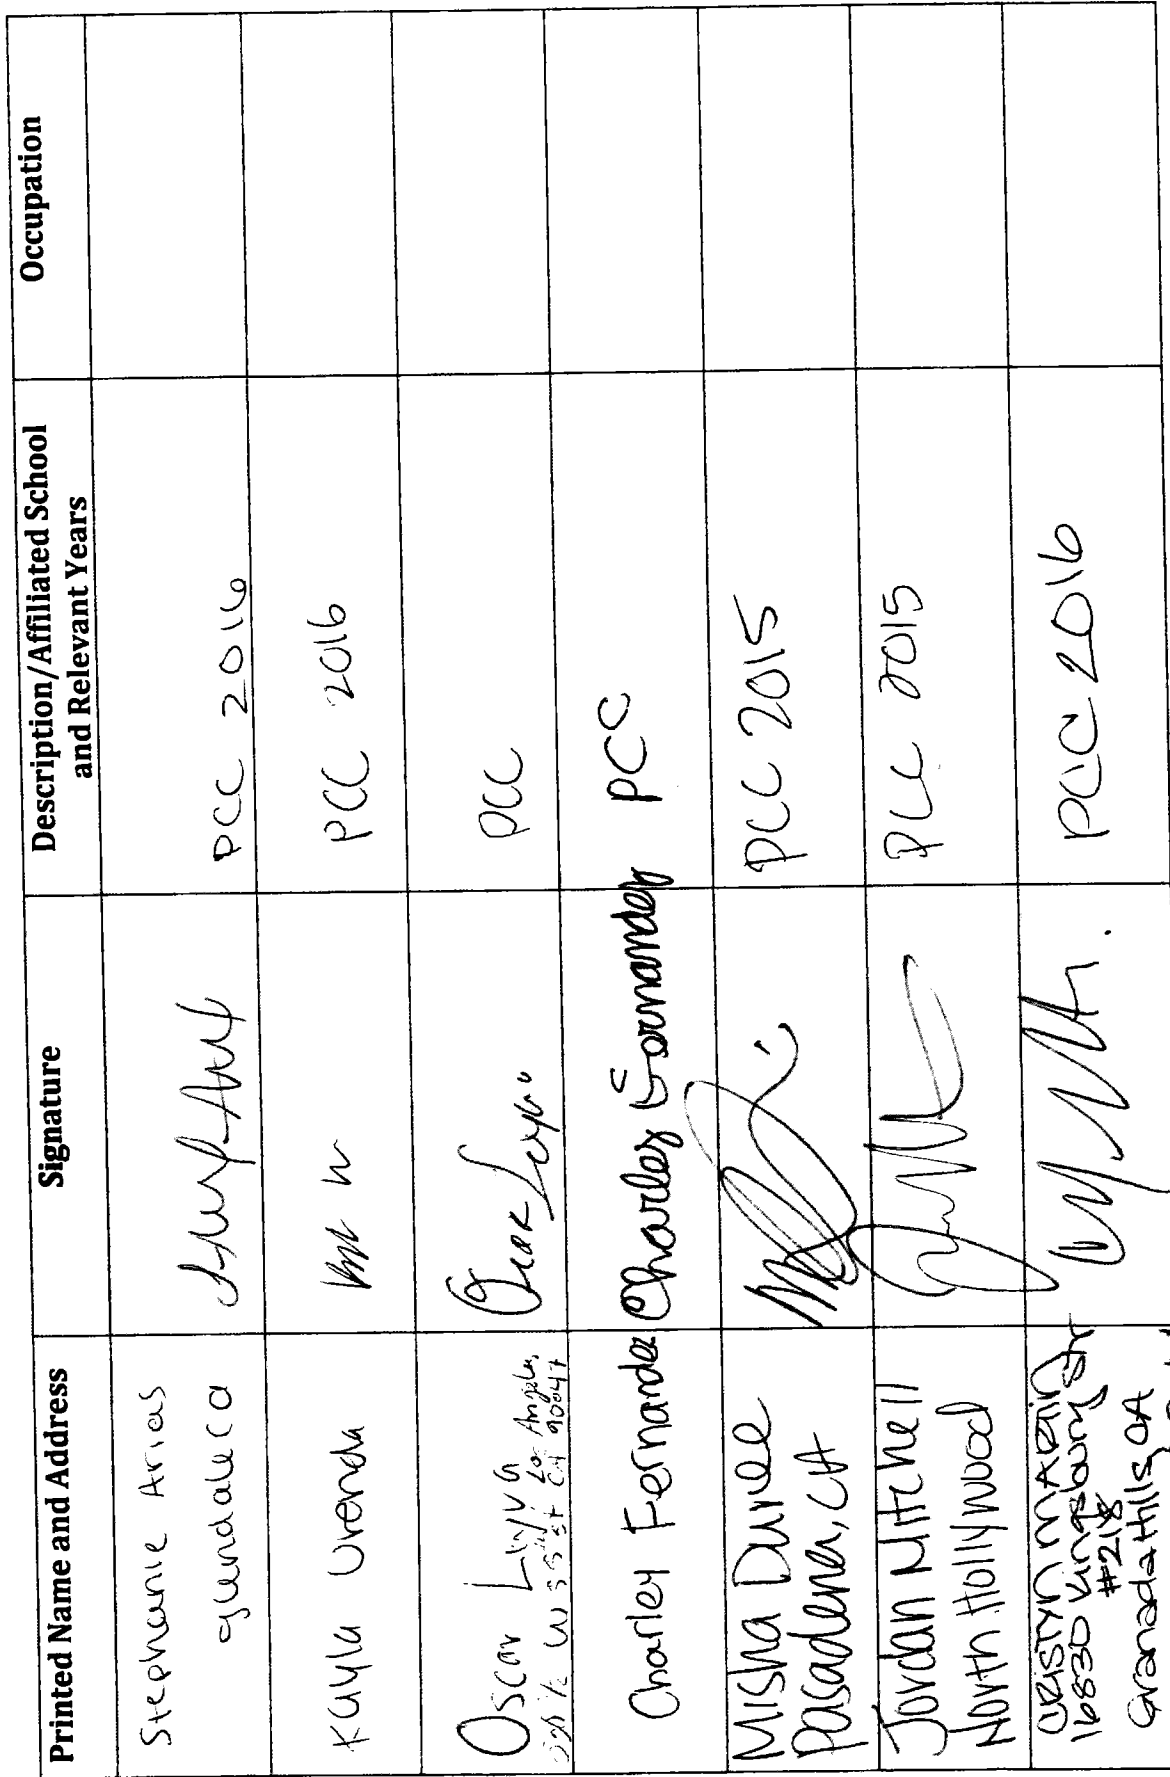 Printed Name and Address Signature Description/Affiliated School and Relevant Years Occupation
Stephanie Arias
glendale ca
PCC 2016
Kayla Urenda
PCC 2016
Oscar Leyva
Los Angeles,
CA 90047
Oscar Leyva
PCC
Charley Fernandez
Charles Fernandez
PCC
Misha Duree
Pasadena, CA
PCC 2015
Jordan Mitchell
North Hollywood
PCC 2015
CRISTYN MARIN
16830 Kingsbury Str
#218
Granada Hills, CA
PCC 2016